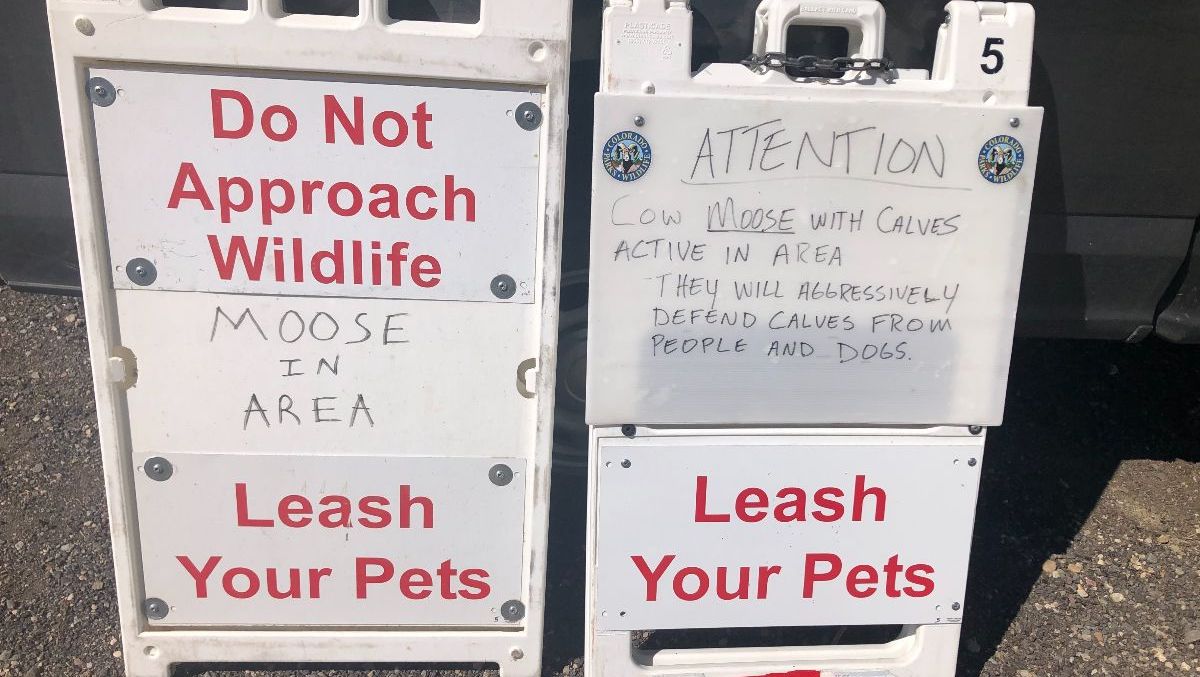 Do Not
Approach
Wildlife
MOOSE
IN
AREA
Leash
Your Pets
5
ATTENTION
COLORADO
PARKS WILDLIFE
COLORADO
PARKS WILDLIFE
COW MOOSE WITH CALVES
ACTIVE IN AREA
THEY WILL AGGRESSIVELY
DEFEND CALVES FROM
PEOPLE AND DOGS.
Leash
Your Pets